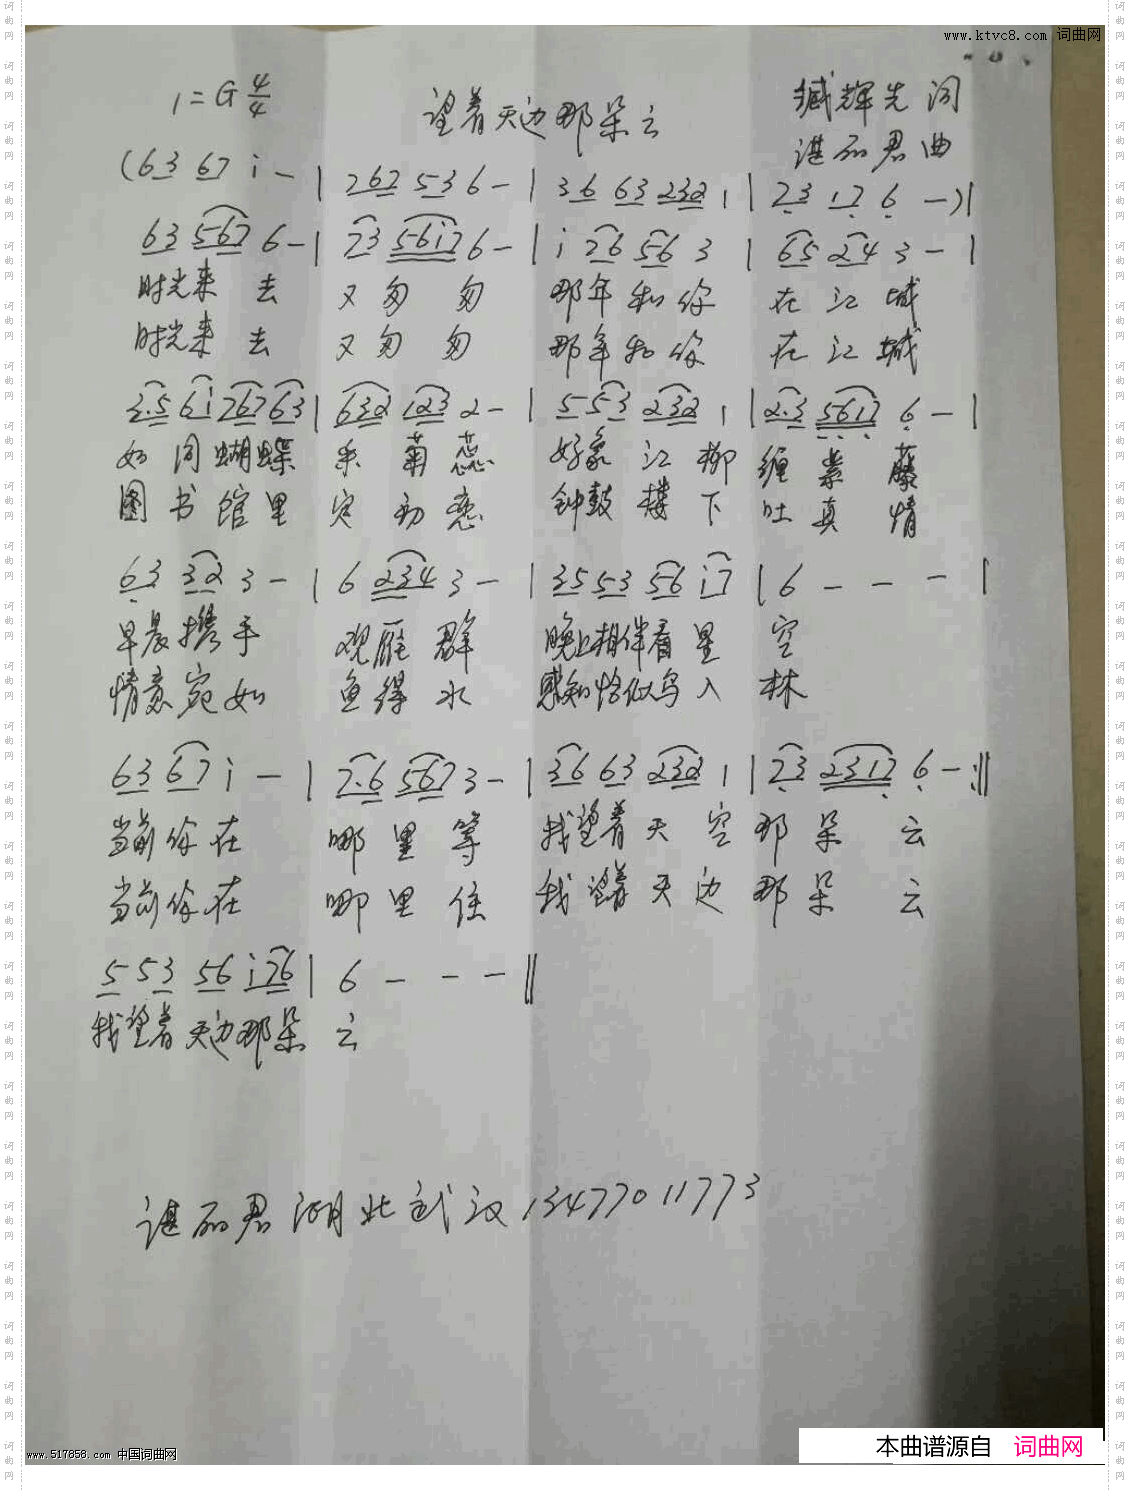 www.ktvc8.com 词曲网
1=G 4/4
望着天边那朵云
臧辉先 词
谌丽君 曲
(63 67 i - | 767 53 6 - | 36 63 232 1 | 23 17 6 -)|
63 567 6 - | 73 56i7 6 - | i 76 56 3 | 65 24 3 - |
时光来去 又匆匆 那年和你 在江城
时光来去 又匆匆 那年和你 在江城
3.5 6i 767 63 | 632 123 2 - | 5 53 232 1 | 2.3 5617 6 - |
如同蝴蝶 采菊蕊 好象江柳 缠紫藤
图书馆里 定初恋 钟鼓楼下 吐真情
63 32 3 - | 6 234 3 - | 35 53 56 i7 | 6 - - - |
早晨携手 观雁群 晚上相伴看星空
情意宛如 鱼得水 感知恰似鸟入林
63 67 i - | 7.6 567 3 - | 36 63 232 1 | 23 2317 6 - :||
当前你在 哪里等 我望着天空 那朵云
当前你在 哪里住 我望着天边 那朵云
5 53 56 i76 | 6 - - - ||
我望着天边那朵云
谌丽君 湖北武汉 13477011773
www.517858.com 中国词曲网
本曲谱源自 词曲网